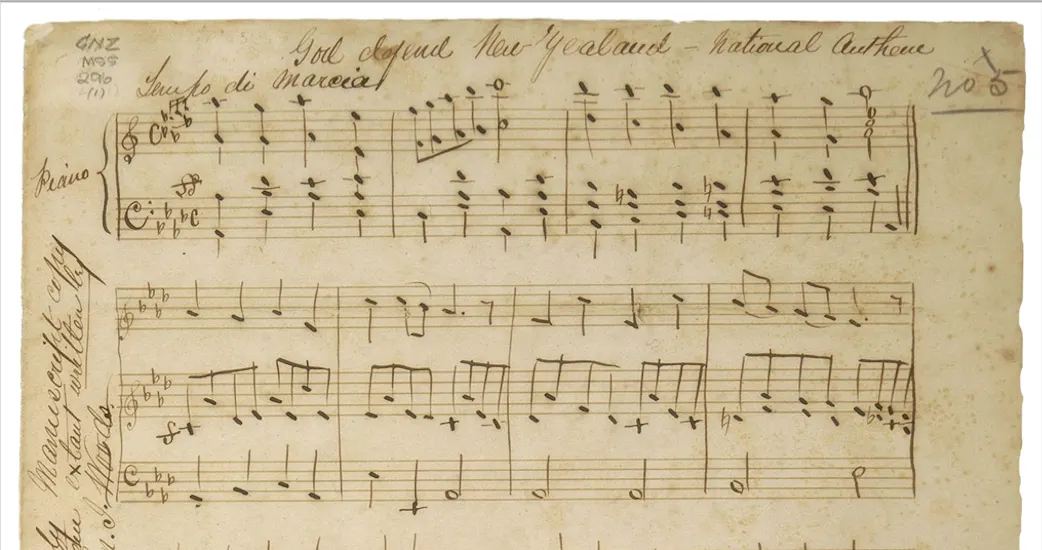 God defend New Zealand - National Anthem
GNZ
MSS
296
(1)
Tempo di Marcia
No 5
Piano
ff
Manuscript copy
extant written by
J. Woods.